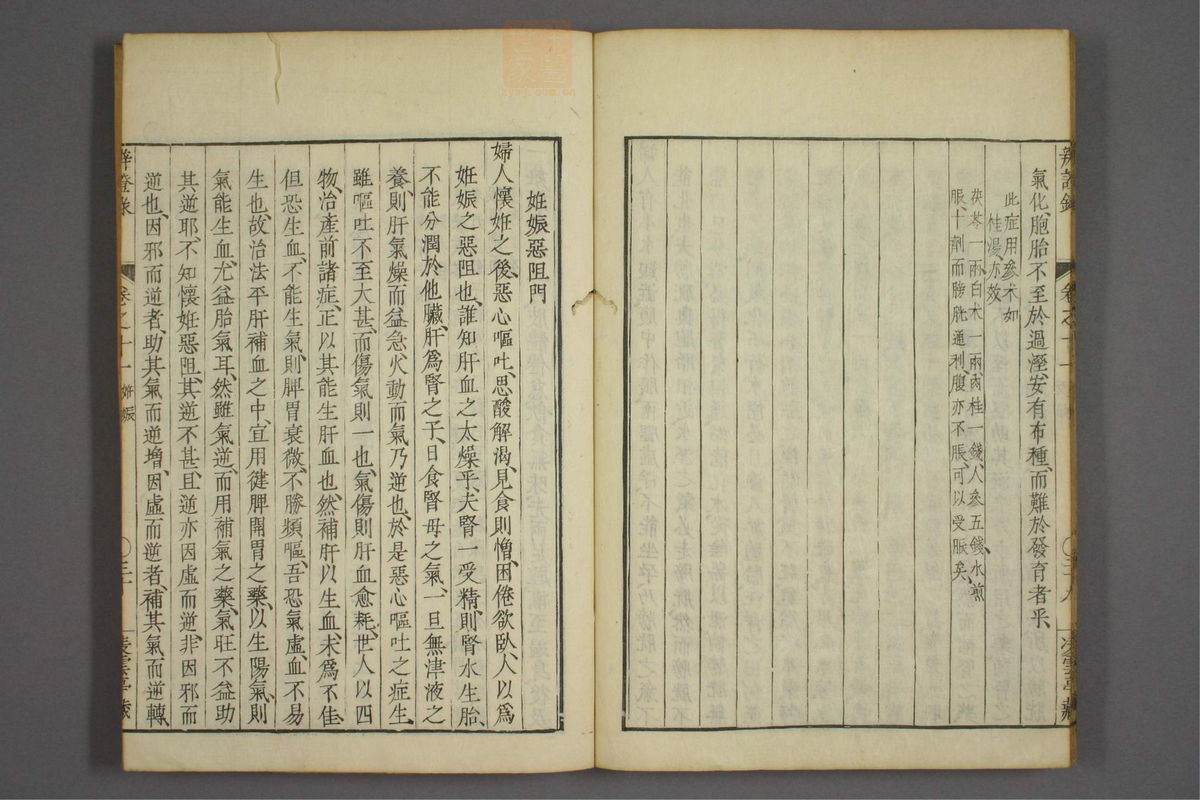 氣化、胞胎不至於過溼、安有布種、而難於發育者乎、
此症用參术加
桂湯、亦效、
茯苓一兩白术一兩肉桂一錢、人參五錢、水煎
服十劑而膀胱通利、腹亦不脹、可以受脤矣、
辨證錄
卷之十一
〇三十九
凌雲亭藏
姙娠惡阻門
婦人懷姙之後、惡心嘔吐、思酸解渴、見食則憎、困倦欲臥、人以爲
姙娠之惡阻也、誰知肝血之太燥乎、夫腎一受精、則腎水生胎、
不能分潤於他臟、肝爲腎之子、日食腎母之氣、一旦無津液之
養、則肝氣燥而益急、火動而氣乃逆也、於是惡心嘔吐之症生、
雖嘔吐不至大甚、而傷氣則一也、氣傷則肝血愈耗、世人以四
物、治產前諸症、正以其能生肝血也、然補肝以生血、未爲不佳、
但恐生血、不能生氣、則脾胃衰微、不勝頻嘔、吾恐氣虛、血不易
生也、故治法平肝補血之中、宜用健脾開胃之藥、以生陽氣、則
氣能生血、尤益胎氣耳、然雖氣逆、而用補氣之藥、氣旺不益助
其逆耶、不知懷姙惡阻、其逆不甚、且逆亦因虛而逆、非因邪而
逆也、因邪而逆者、助其氣而逆增、因虛而逆者、補其氣而逆轉、
辨證錄
卷之十一 姙娠
凌雲亭藏